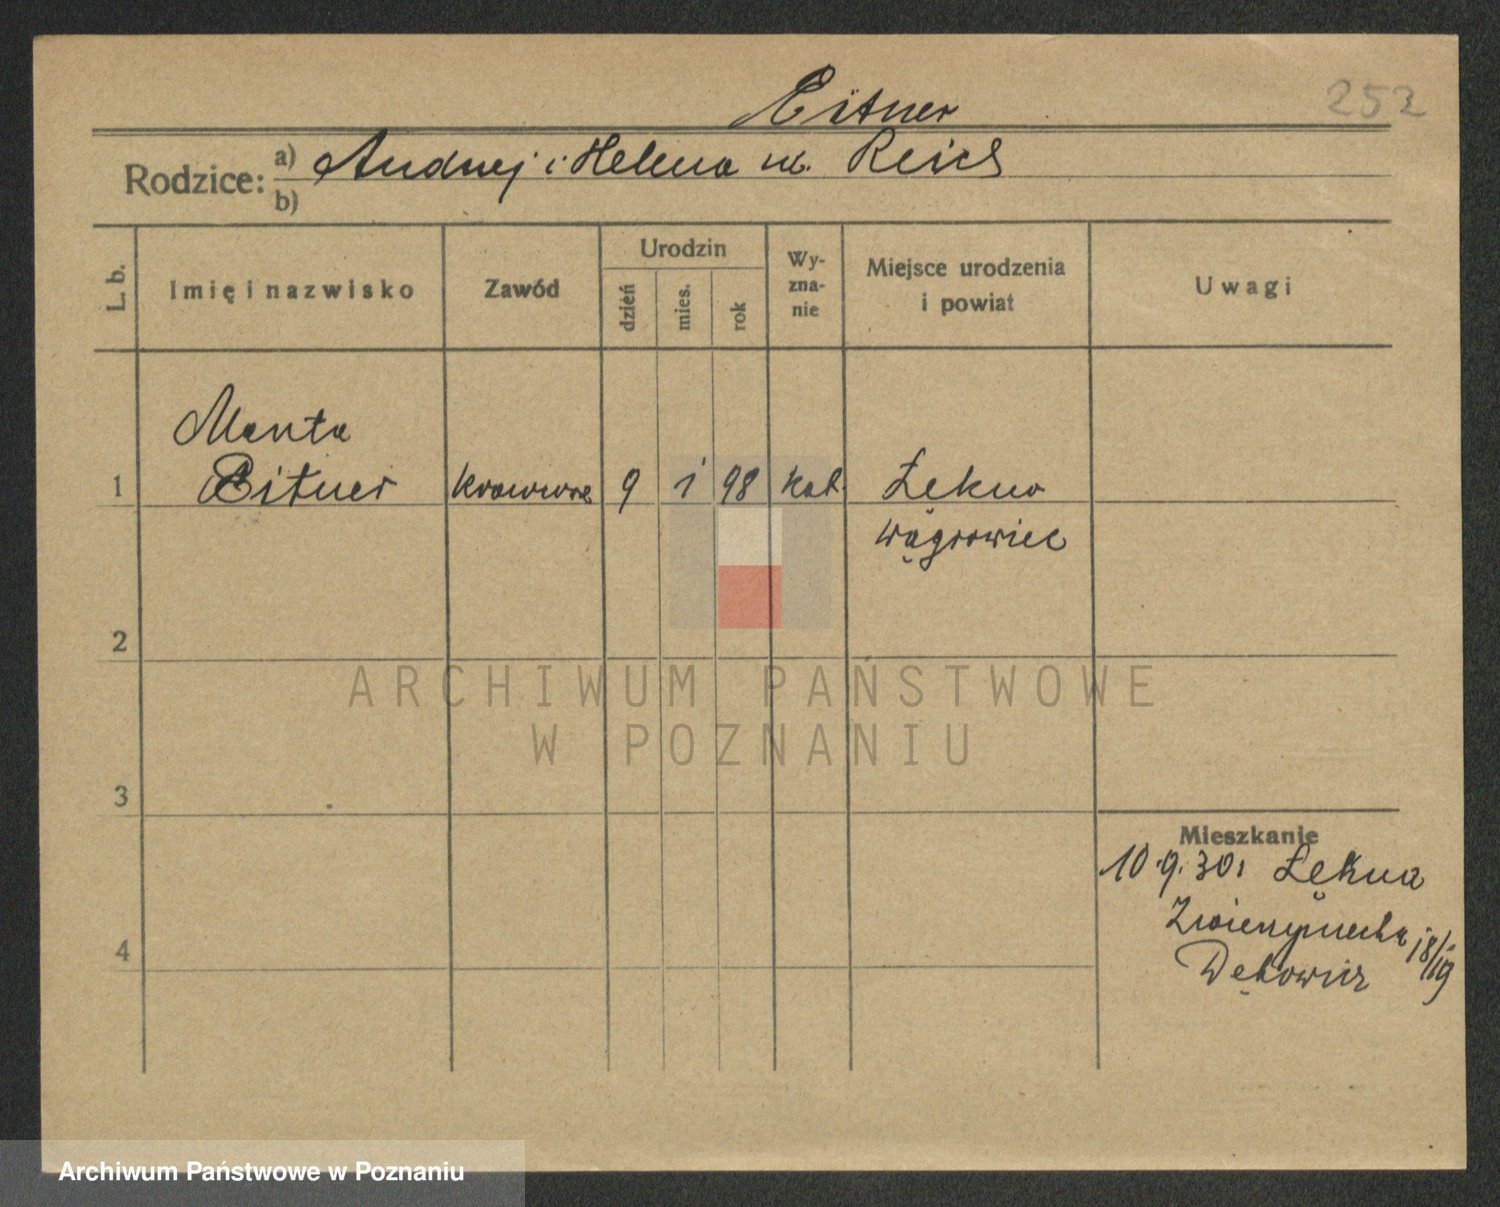 252
Eitner
Rodzice: a) Andrzej i Helena ur. Reich
b)
L. b.
Imię i nazwisko
Zawód
Urodzin
dzień
mies.
rok
Wy-
zna-
nie
Miejsce urodzenia
i powiat
Uwagi
Marta
1 Eitner krawcowa 9 1 98 kat. Łekno
Wągrowiec
2
3
4
Mieszkanie
10.9.30. Łękna
Zwierzyniecka 18/19
ARCHIWUM PAŃSTWOWE
W POZNANIU
Archiwum Państwowe w Poznaniu